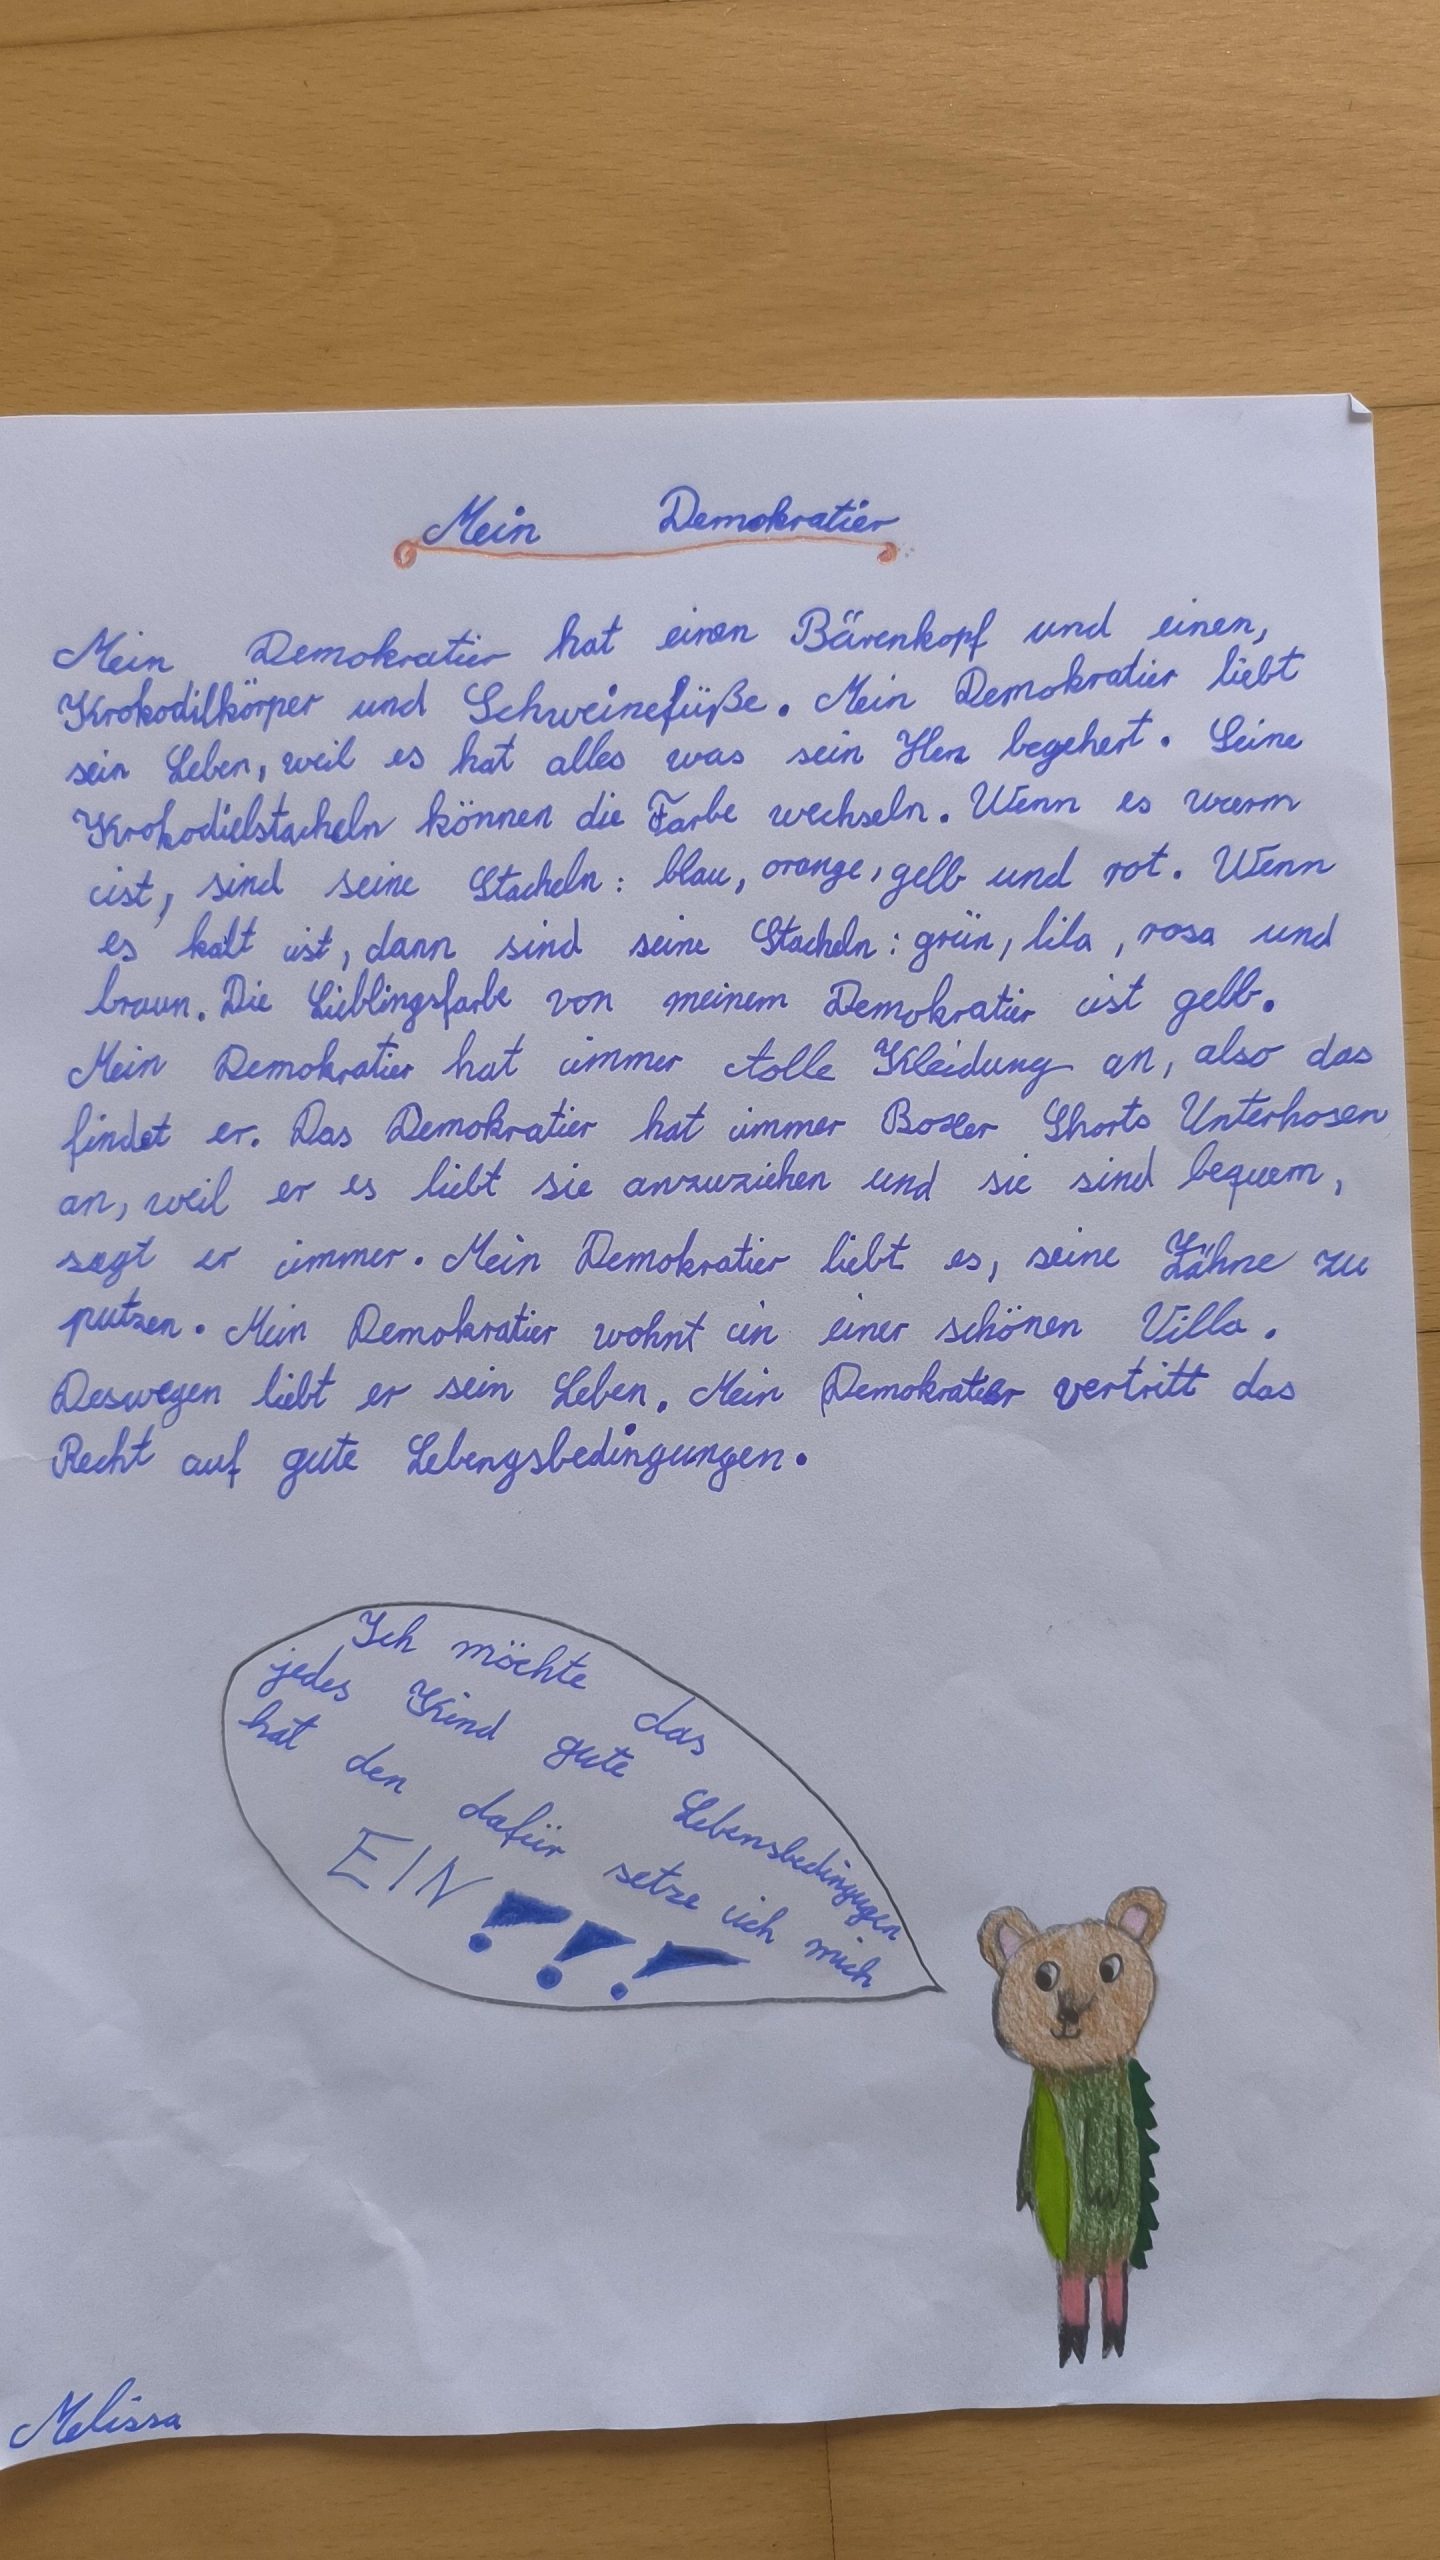 Mein Demokratier
Mein Demokratier hat einen Bärenkopf und einen,
Krokodilkörper und Schweinefüße. Mein Demokratier liebt
sein Leben, weil es hat alles was sein Herz begehert. Seine
Krokodielstacheln können die Farbe wechseln. Wenn es warm
ist, sind seine Stacheln: blau, orange, gelb und rot. Wenn
es kalt ist, dann sind seine Stacheln: grün, lila, rosa und
braun. Die Lieblingsfarbe von meinem Demokratier ist gelb.
Mein Demokratier hat immer tolle Kleidung an, also das
findet er. Das Demokratier hat immer Boxer Shorts Unterhosen
an, weil er es liebt sie anzuziehen und sie sind bequem,
sagt er immer. Mein Demokratier liebt es, seine Zähne zu
putzen. Mein Demokratier wohnt in einer schönen Villa.
Deswegen liebt er sein Leben. Mein Demokratier vertritt das
Recht auf gute Lebengsbedingungen.
Ich möchte das
jedes Kind gute Lebensbedingugen
hat den dafür setze ich mich
EIN!!!
Melissa